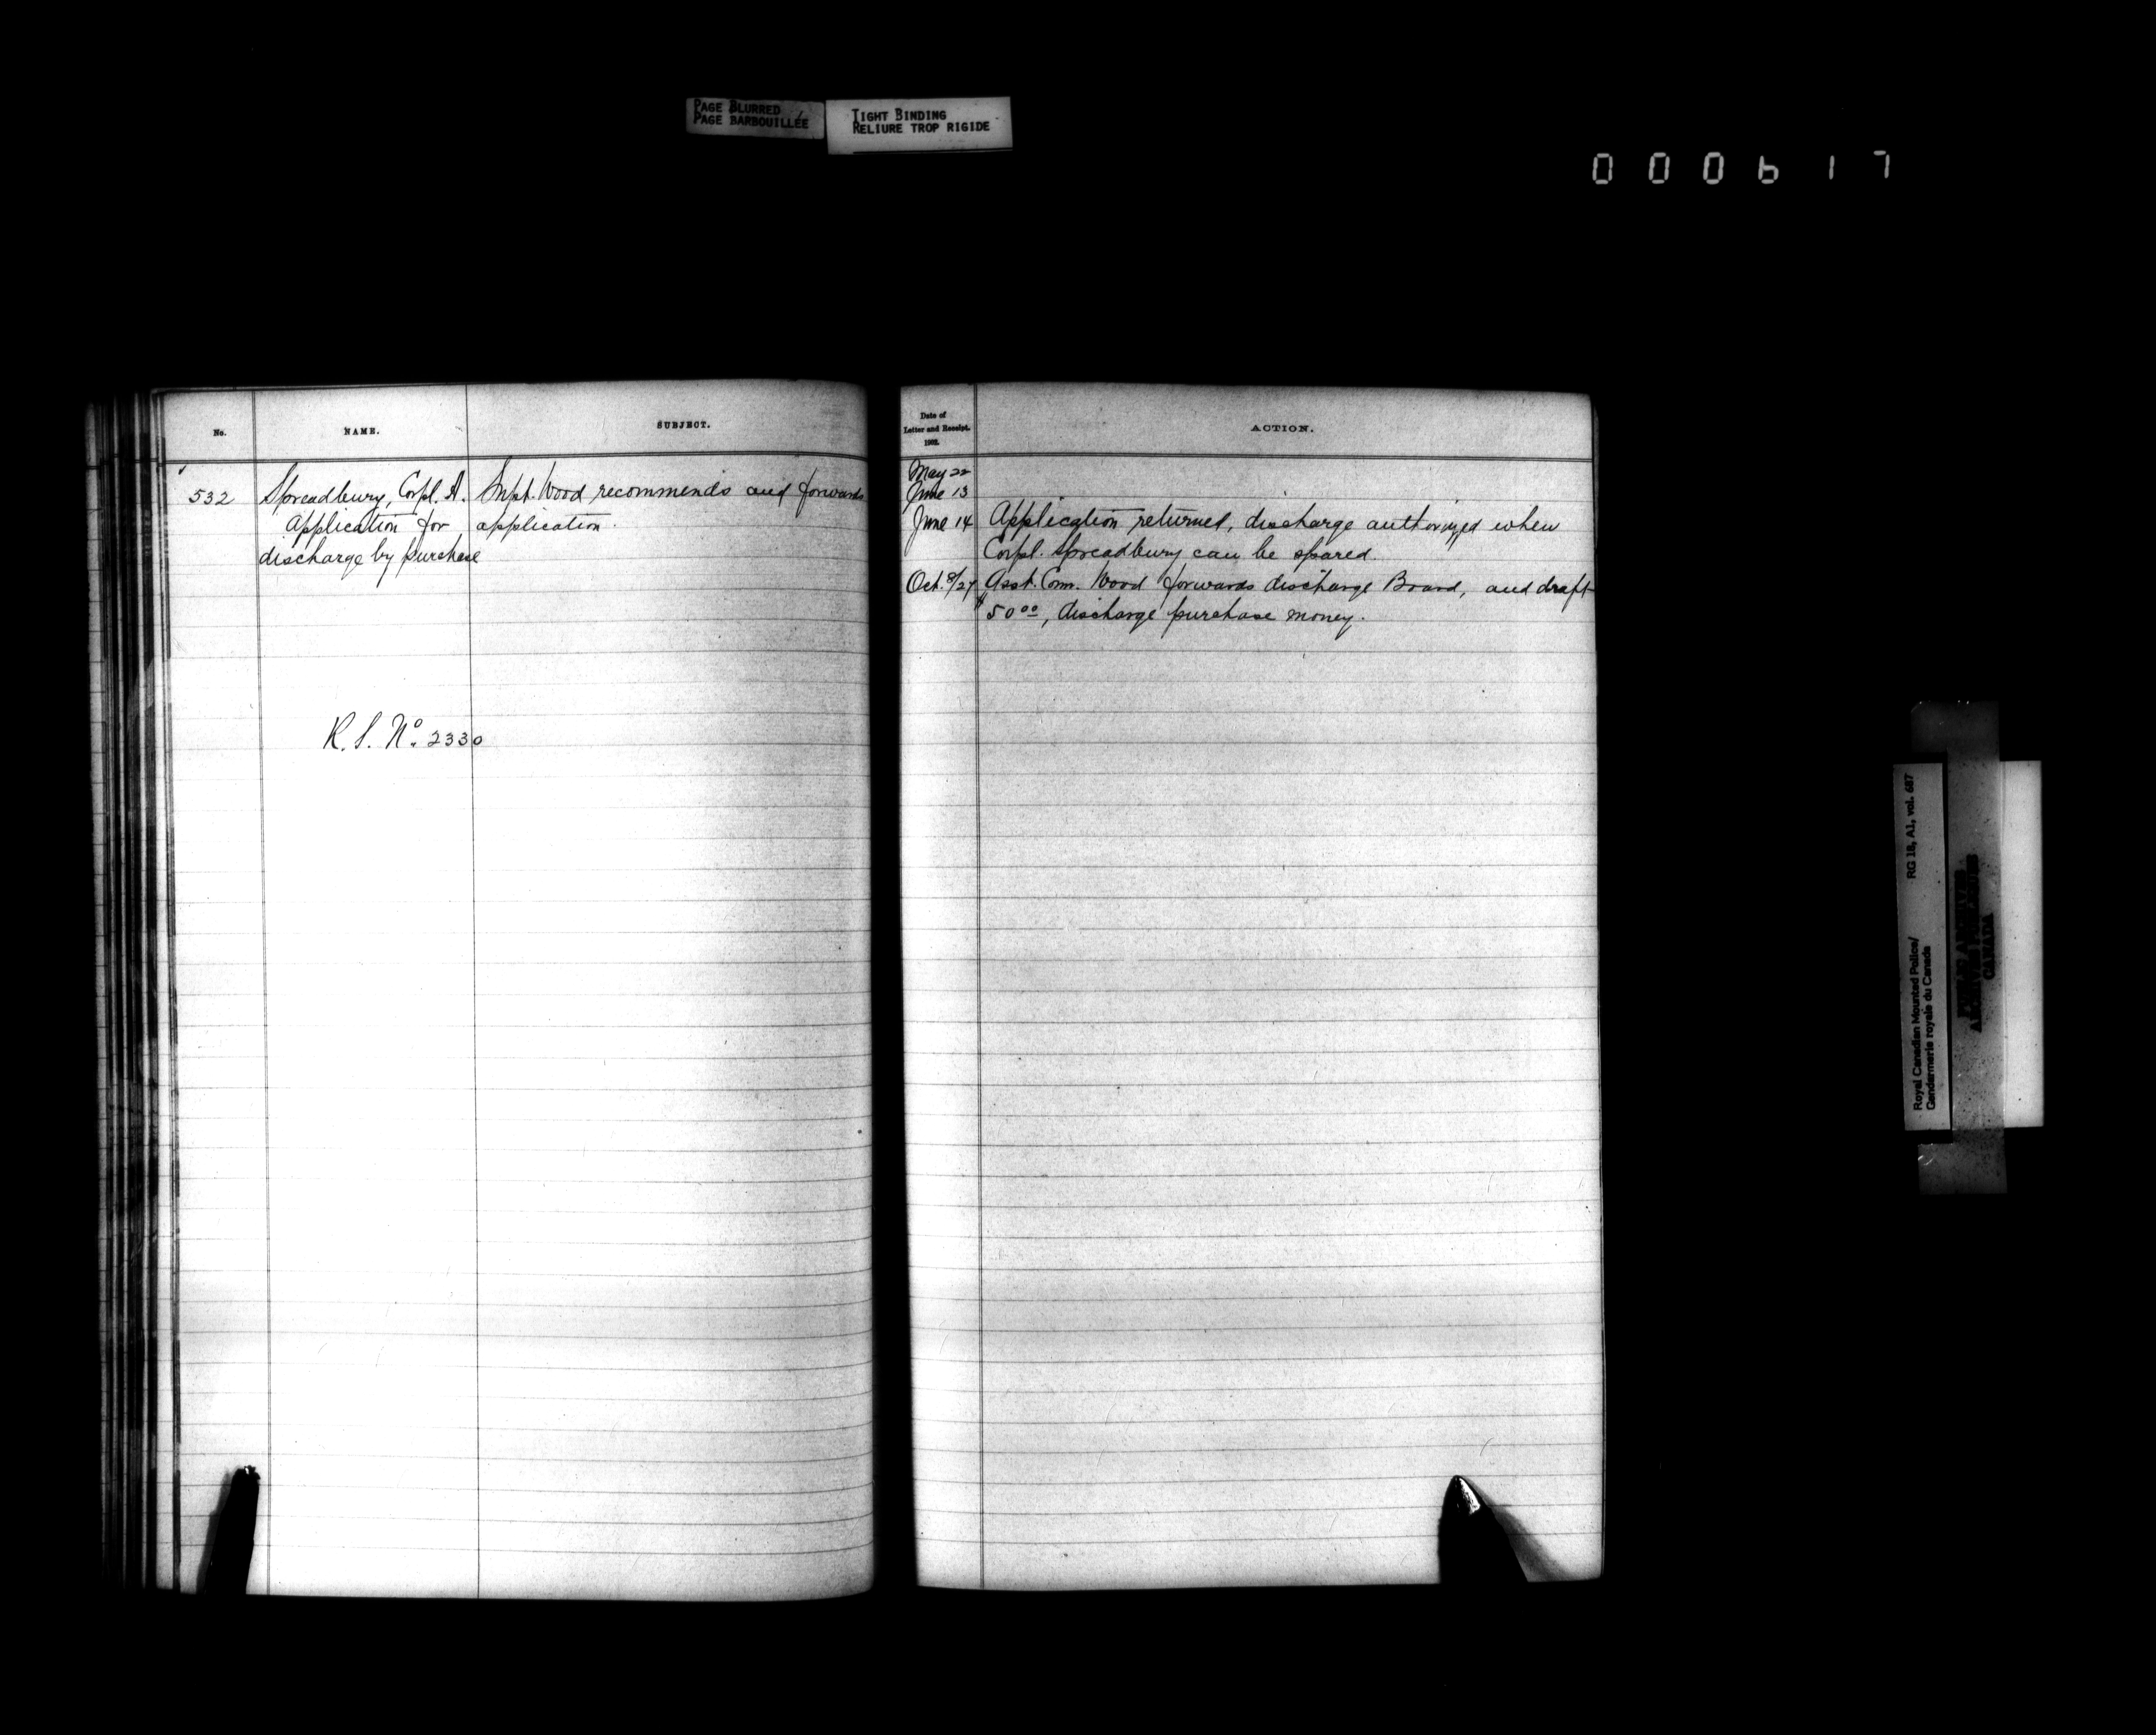 PAGE BLURRED
PAGE BARBOUILLÉE
TIGHT BINDING
RELIURE TROP RIGIDE
000617
No.
NAME.
SUBJECT.
Date of
Letter and Receipt.
1902.
ACTION.
532
Spreadbury, Corpl. A.
Application for
discharge by purchase
Supt. Wood recommends and forwards
application.
R.S. No. 2330
May 22
June 13
June 14 Application returned, discharge authorized when
Corpl. Spreadbury can be spared.
Oct. 8/27 Asst. Com. Wood forwards discharge Board, and draft
$50 00, discharge purchase money.
Royal Canadian Mounted Police/ RG 18, A1, vol. 687
Gendarmerie royale du Canada
PUBLIC ARCHIVES
ARCHIVES PUBLIQUES
CANADA